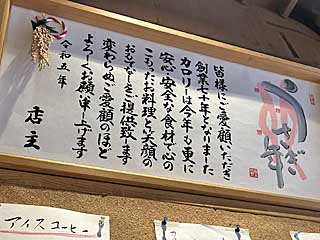 うさぎ年
皆様にご愛顧いただき
創業七十年となりました
カロリーは今年も更に
安心・安全な食材で心の
こもったお料理と笑顔の
おもてなしをご提供致します
変わらぬご愛顧のほど
よろしくお願い申し上げます
令和五年
店主
アイスコーヒー